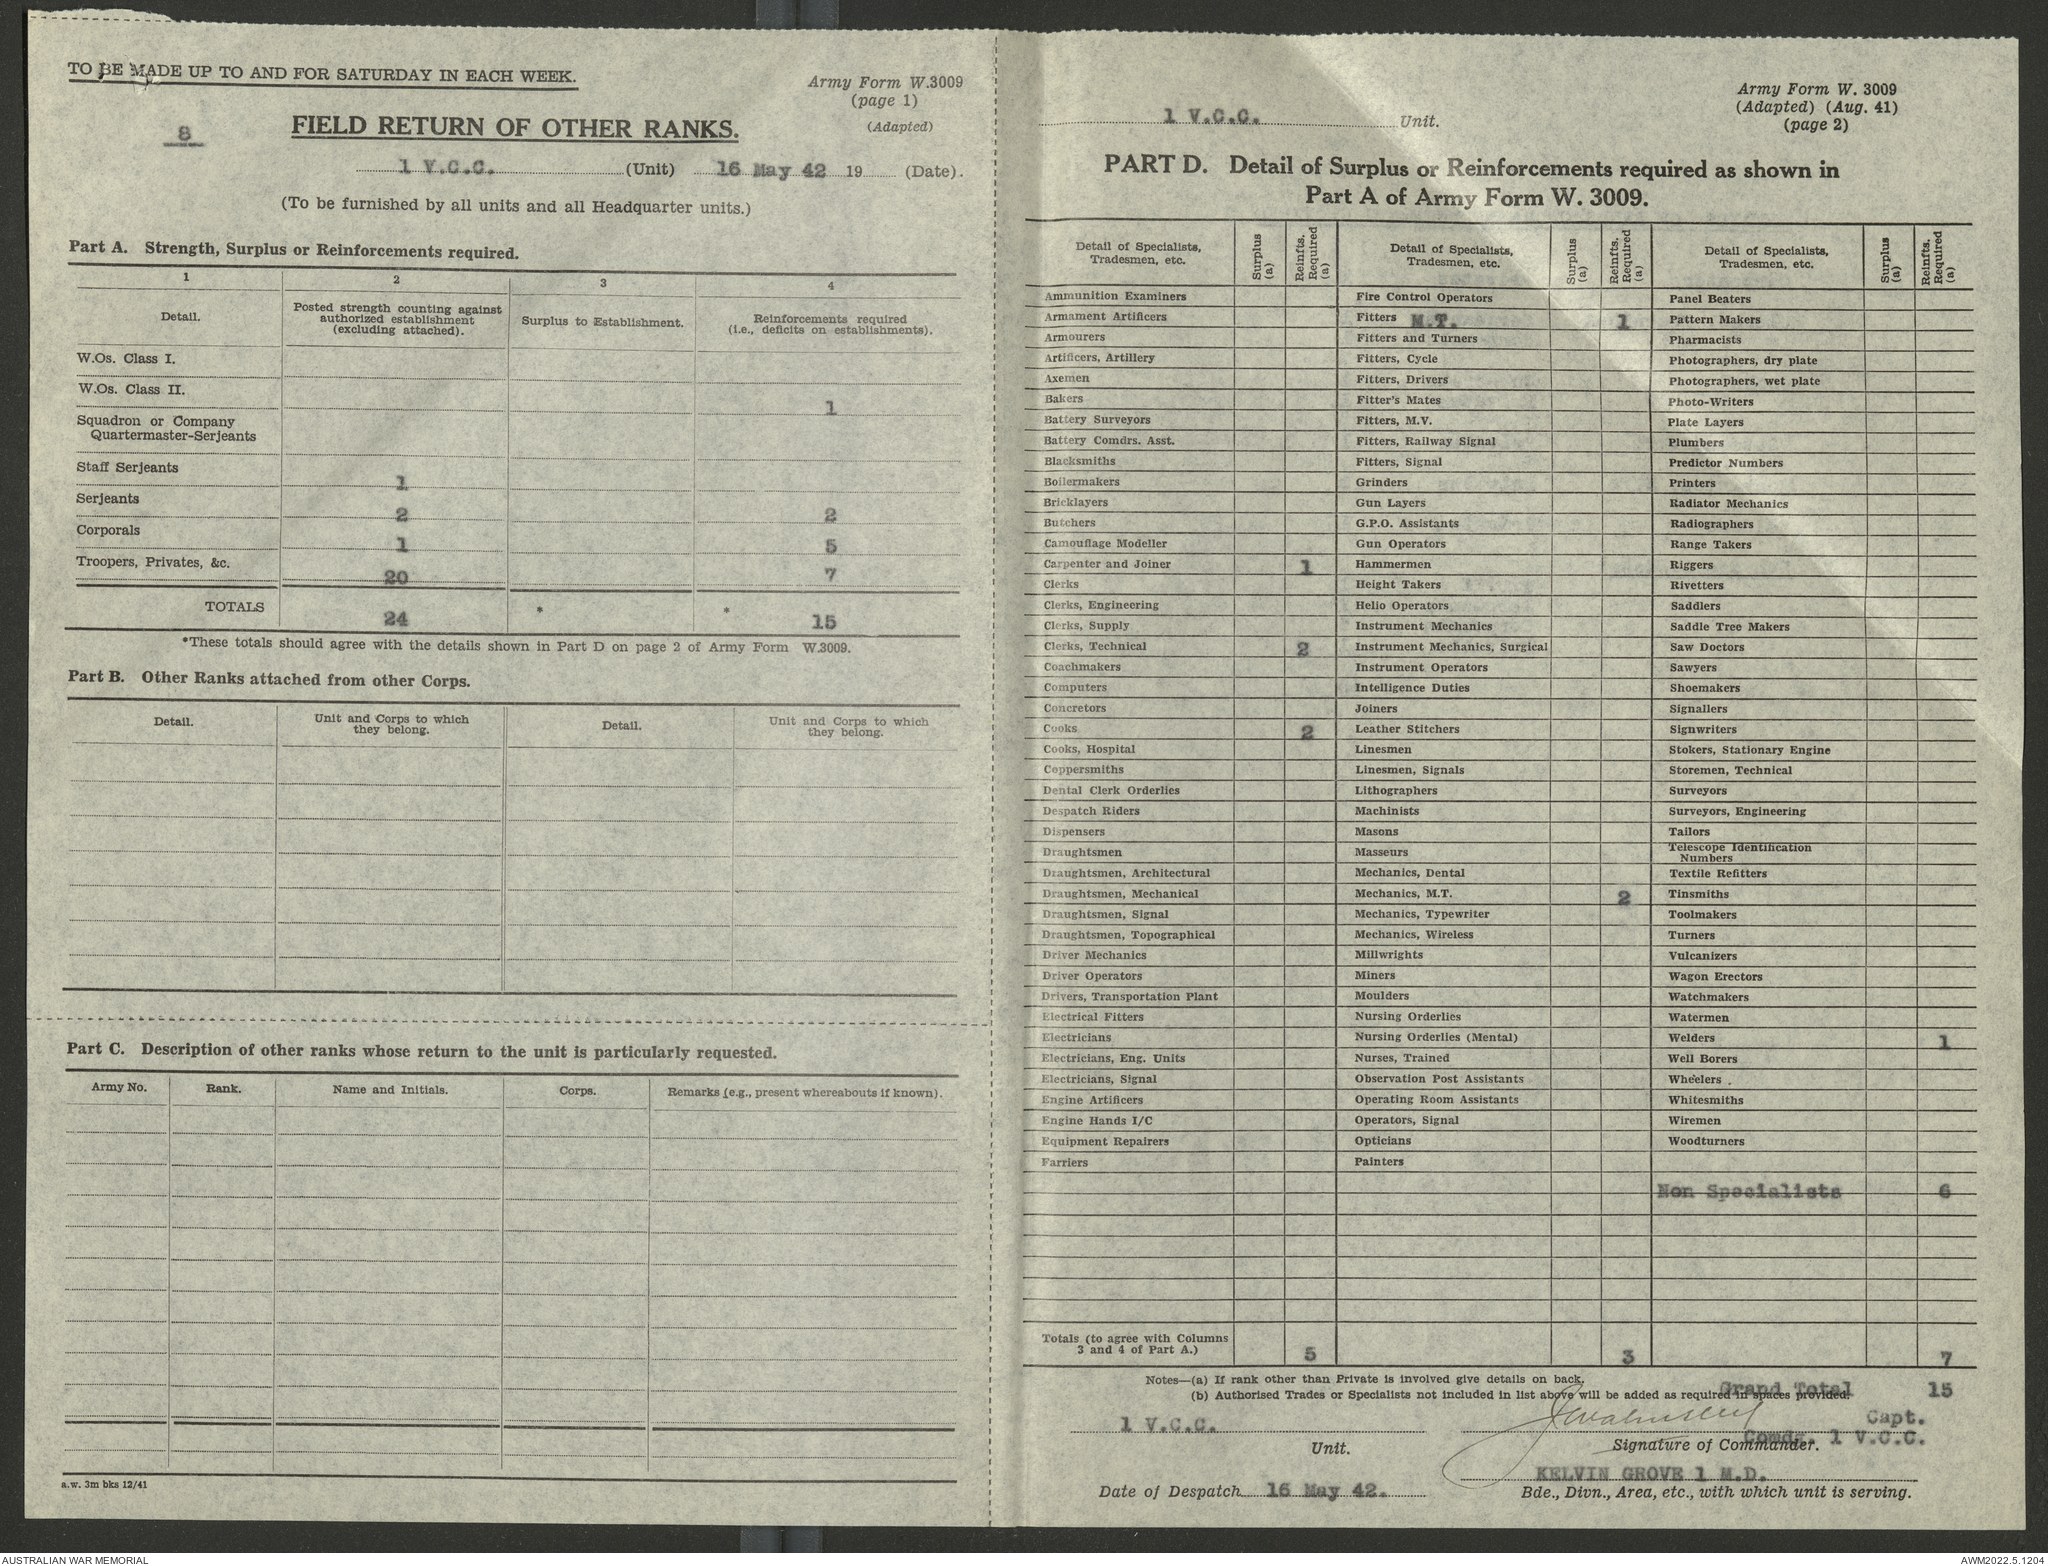 TO BE MADE UP TO AND FOR SATURDAY IN EACH WEEK.
Army Form W.3009
(page 1)
(Adapted)
8
FIELD RETURN OF OTHER RANKS.
1 V.C.C. (Unit) 16 May 42 19 (Date).
(To be furnished by all units and all Headquarter units.)
Part A. Strength, Surplus or Reinforcements required.
1 2 3 4
Detail. Posted strength counting against authorized establishment (excluding attached). Surplus to Establishment. Reinforcements required (i.e., deficits on establishments).
W.Os. Class I.
W.Os. Class II. 1
Squadron or Company
Quartermaster-Serjeants
Staff Serjeants 1
Serjeants 2 2
Corporals 1 5
Troopers, Privates, &c. 20 7
TOTALS 24 * * 15
*These totals should agree with the details shown in Part D on page 2 of Army Form W.3009.
Part B. Other Ranks attached from other Corps.
Detail. Unit and Corps to which they belong. Detail. Unit and Corps to which they belong.
Part C. Description of other ranks whose return to the unit is particularly requested.
Army No. Rank. Name and Initials. Corps. Remarks (e.g., present whereabouts if known).
a.w. 3m bks 12/41
1 V.C.C. Unit.
Army Form W. 3009
(Adapted) (Aug. 41)
(page 2)
PART D. Detail of Surplus or Reinforcements required as shown in
Part A of Army Form W. 3009.
Detail of Specialists, Tradesmen, etc. Surplus (a) Reinfts. Required (a) Detail of Specialists, Tradesmen, etc. Surplus (a) Reinfts. Required (a) Detail of Specialists, Tradesmen, etc. Surplus (a) Reinfts. Required (a)
Ammunition Examiners Fire Control Operators Panel Beaters
Armament Artificers Fitters M.T. 1 Pattern Makers
Armourers Fitters and Turners Pharmacists
Artificers, Artillery Fitters, Cycle Photographers, dry plate
Axemen Fitters, Drivers Photographers, wet plate
Bakers Fitter's Mates Photo-Writers
Battery Surveyors Fitters, M.V. Plate Layers
Battery Comdrs. Asst. Fitters, Railway Signal Plumbers
Blacksmiths Fitters, Signal Predictor Numbers
Boilermakers Grinders Printers
Bricklayers Gun Layers Radiator Mechanics
Butchers G.P.O. Assistants Radiographers
Camouflage Modeller Gun Operators Range Takers
Carpenter and Joiner 1 Hammermen Riggers
Clerks Height Takers Rivetters
Clerks, Engineering Helio Operators Saddlers
Clerks, Supply Instrument Mechanics Saddle Tree Makers
Clerks, Technical 2 Instrument Mechanics, Surgical Saw Doctors
Coachmakers Instrument Operators Sawyers
Computers Intelligence Duties Shoemakers
Concretors Joiners Signallers
Cooks 2 Leather Stitchers Signwriters
Cooks, Hospital Linesmen Stokers, Stationary Engine
Coppersmiths Linesmen, Signals Storemen, Technical
Dental Clerk Orderlies Lithographers Surveyors
Despatch Riders Machinists Surveyors, Engineering
Dispensers Masons Tailors
Draughtsmen Masseurs Telescope Identification Numbers
Draughtsmen, Architectural Mechanics, Dental Textile Refitters
Draughtsmen, Mechanical Mechanics, M.T. 2 Tinsmiths
Draughtsmen, Signal Mechanics, Typewriter Toolmakers
Draughtsmen, Topographical Mechanics, Wireless Turners
Driver Mechanics Millwrights Vulcanizers
Driver Operators Miners Wagon Erectors
Drivers, Transportation Plant Moulders Watchmakers
Electrical Fitters Nursing Orderlies Watermen
Electricians Nursing Orderlies (Mental) Welders 1
Electricians, Eng. Units Nurses, Trained Well Borers
Electricians, Signal Observation Post Assistants Wheelers
Engine Artificers Operating Room Assistants Whitesmiths
Engine Hands I/C Operators, Signal Wiremen
Equipment Repairers Opticians Woodturners
Farriers Painters
Non Specialists 6
Totals (to agree with Columns 3 and 4 of Part A.) 5 3 7
Notes—(a) If rank other than Private is involved give details on back.
(b) Authorised Trades or Specialists not included in list above will be added as required in spaces provided.
Grand Total 15
1 V.C.C. Capt.
Unit. Signature of Commander. Comdg. 1 V.C.C.
KELVIN GROVE 1 M.D.
Date of Despatch 16 May 42. Bde., Divn., Area, etc., with which unit is serving.
AUSTRALIAN WAR MEMORIAL AWM2022.5.1204